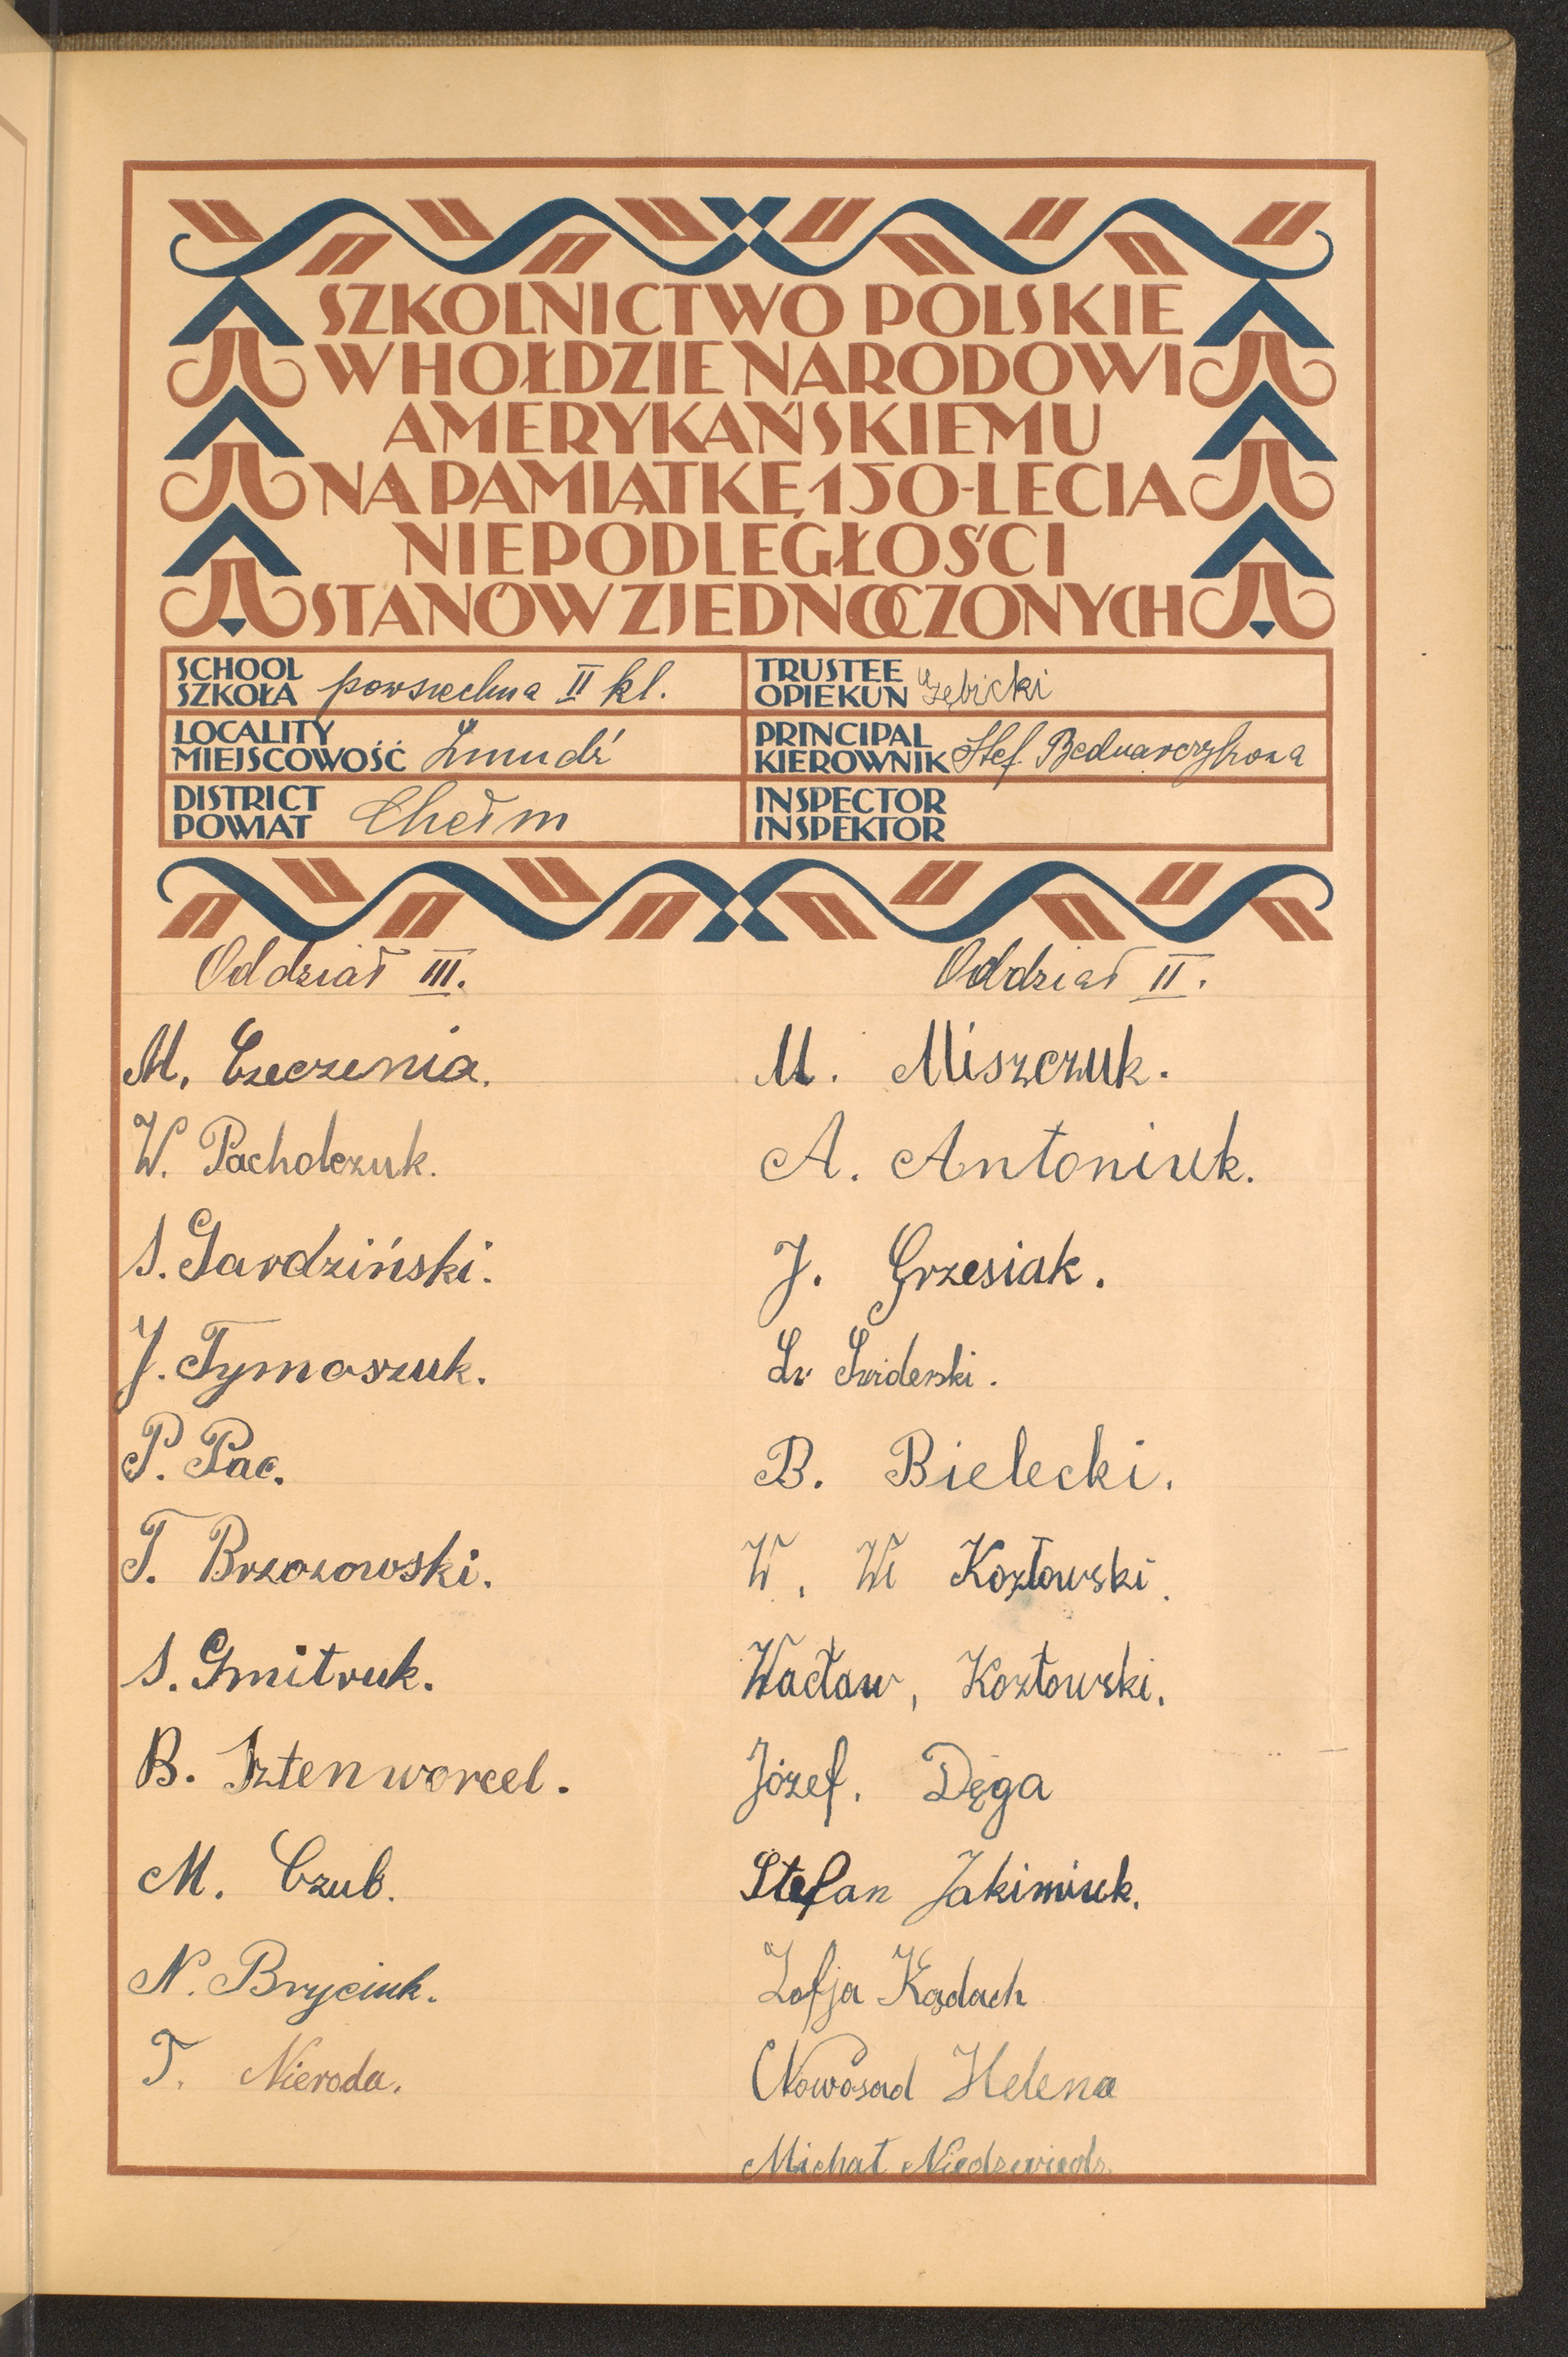 SZKOLNICTWO POLSKIE
W HOŁDZIE NARODOWI
AMERYKAŃSKIEMU
NA PAMIĄTKĘ 150-LECIA
NIEPODLEGŁOŚCI
STANÓW ZJEDNOCZONYCH
SCHOOL
SZKOŁA powszechna II kl.
TRUSTEE
OPIEKUN Zębicki
LOCALITY
MIEJSCOWOŚĆ Żmudź
PRINCIPAL
KIEROWNIK Stef. Bednarczykowa
DISTRICT
POWIAT Chełm
INSPECTOR
INSPEKTOR
Oddział III.
M. Czeczenia.
W. Pacholczuk.
S. Gardziński.
J. Tymoszuk.
P. Pac.
T. Brzozowski.
S. Gmitruk.
B. Sztenworcel.
M. Czub.
N. Bryciuk.
T. Nieroda.
Oddział II.
M. Miszczuk.
A. Antoniuk.
J. Grzesiak.
Świderski.
B. Bielecki.
W. Wł Kozłowski.
Wacław, Kozłowski.
Józef. Dęga
Stefan Jakimiuk.
Zofja Kądach
Nowosad Helena
Michał Niedzwiedz.